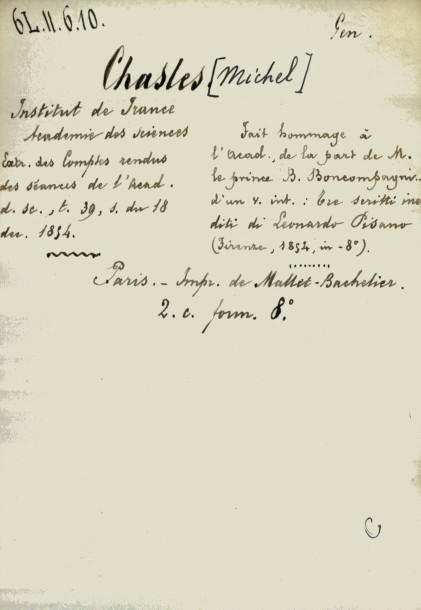 6L.11.6.10.
Gen.
Chasles [Michel]
Institut de France
Academie des sciences
Extr. des Comptes rendus
des séances de l'Acad.
d. sc., t. 39, s. du 18
dec. 1854.
Fait hommage à
l'Acad., de la part de M.
le prince B. Boncompagni..
d'un v. int.: Tre scritti ine
diti di Leonardo Pisano
(Firenze, 1854, in-8°).
Paris. - Impr. de Mallet-Bachelier.
2. c. form. 8°.
C